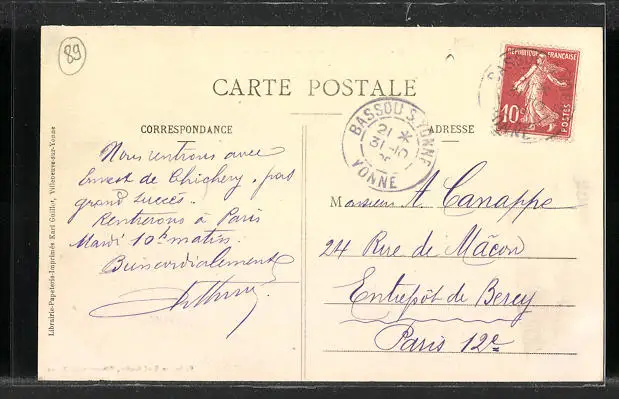 89
CARTE POSTALE
RÉPUBLIQUE FRANÇAISE
10c
POSTES
CORRESPONDANCE
ADRESSE
BASSOU S. YONNE
21 *
31-10
YONNE
Nous rentrons avec
Ernest de Chichery, pas
grand succès.
Rentrerons à Paris
Mardi 10h matin.
Bien cordialement
Monsieur A. Canappe
24 Rue de Mâcon
Entrepôt de Bercy
Paris 12e
Librairie-Papeterie-Imprimés Karl Guillot, Villeneuve-sur-Yonne